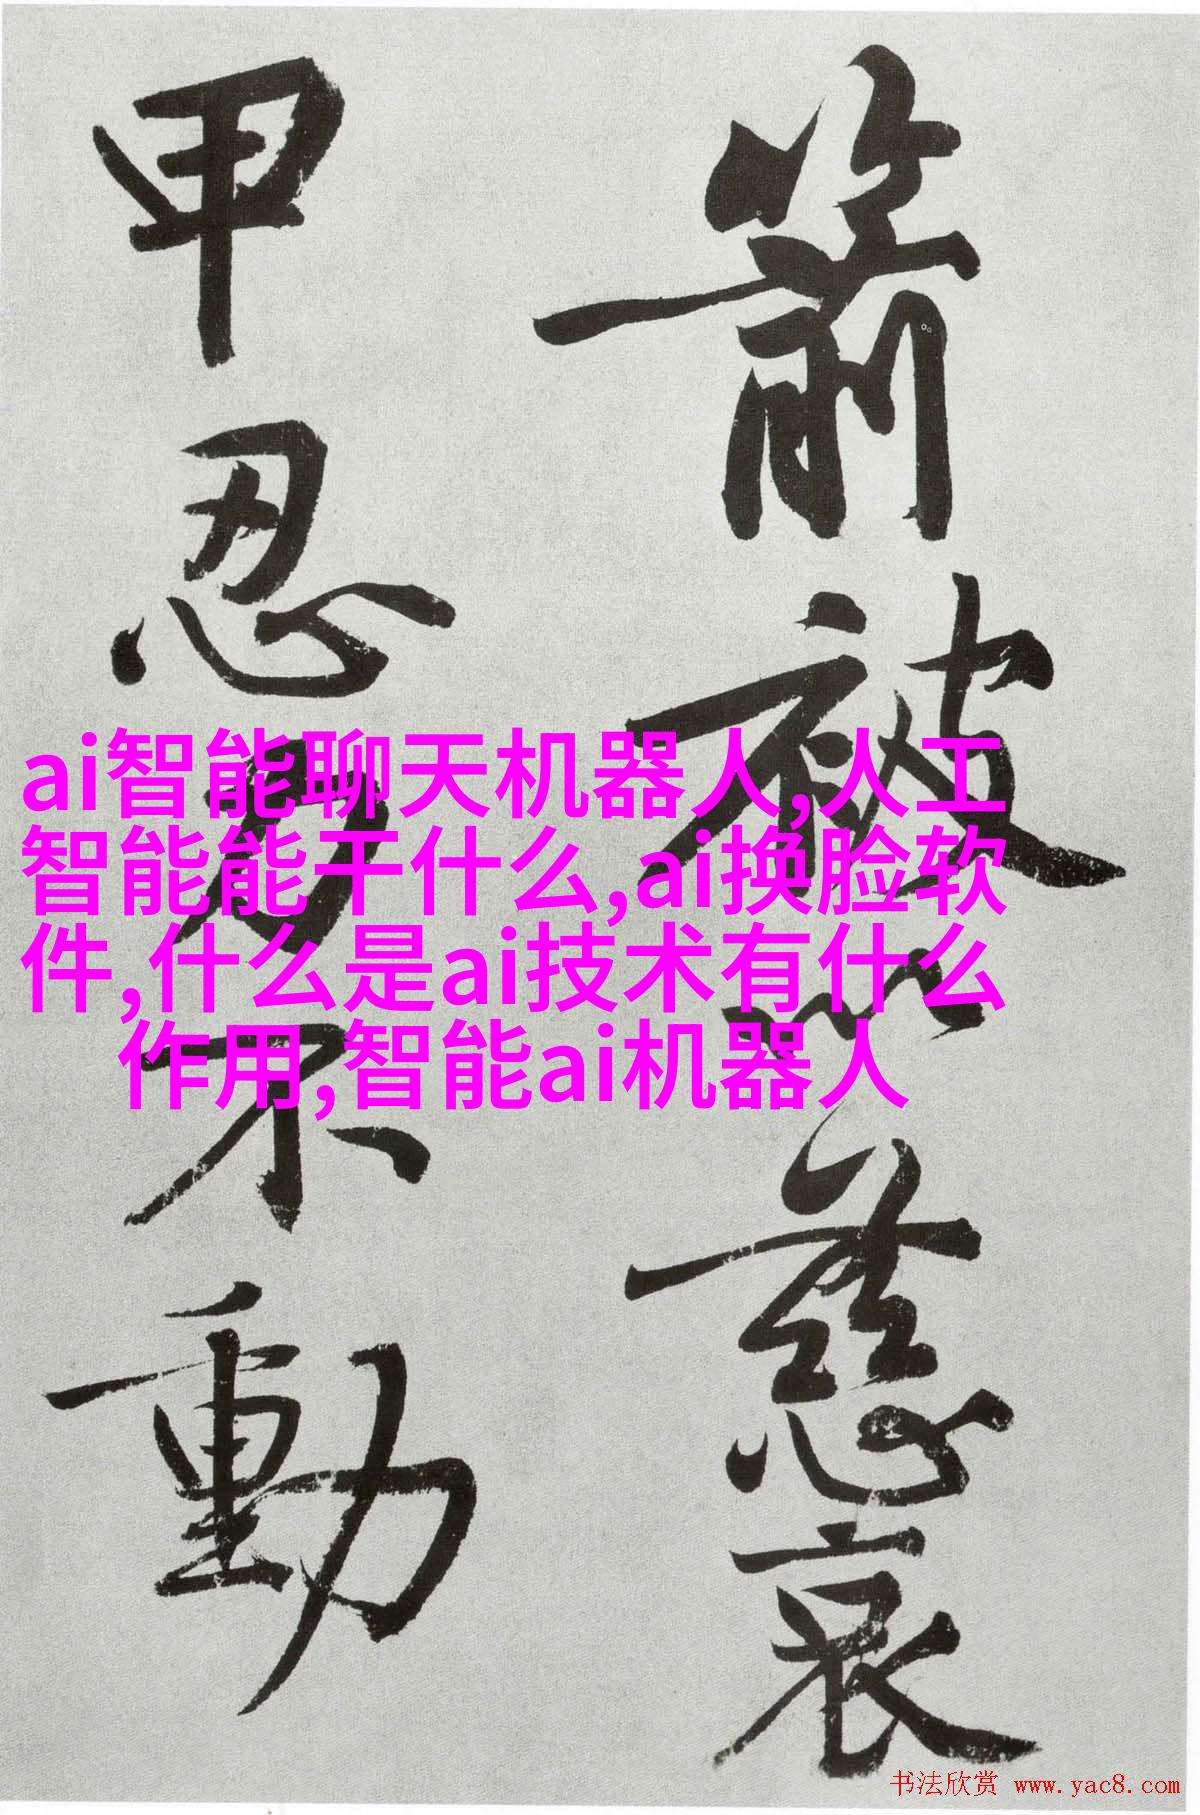 箭被慈哀
甲忍力不動
ai智能聊天机器人,人工
智能能干什么,ai换脸软
件,什么是ai技术有什么
作用,智能ai机器人
书法欣赏 www.yac8.com